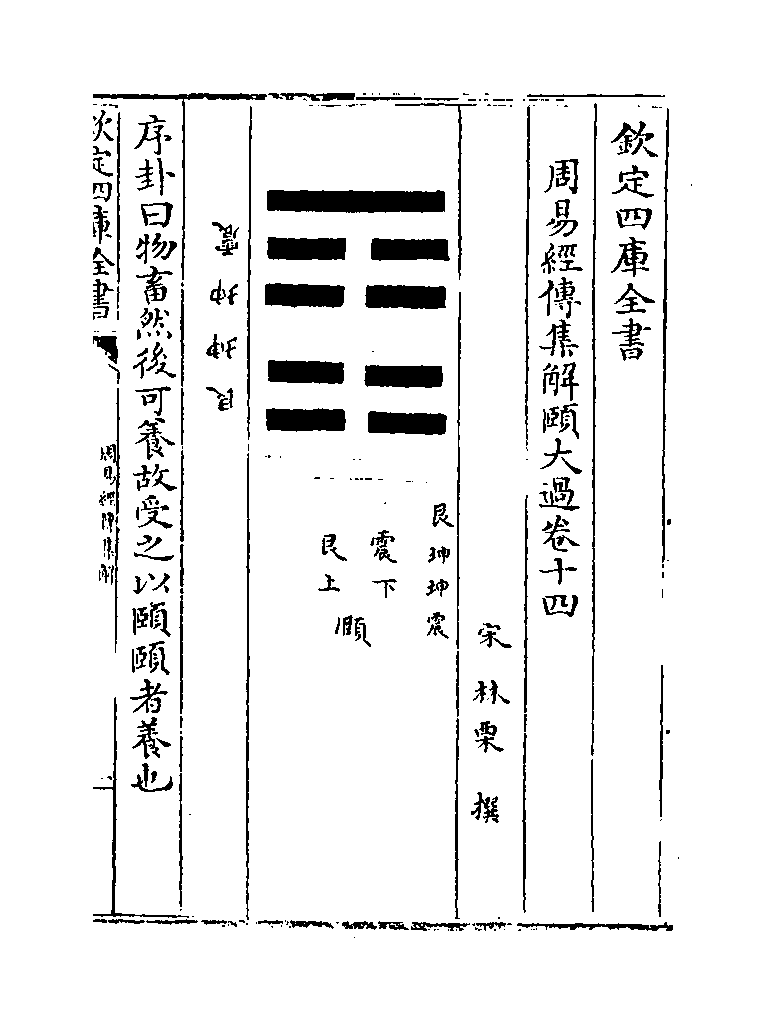 欽定四庫全書
周易經傳集解頤大過卷十四
宋 林栗 撰
艮坤坤震
震下
艮上
頤
震坤坤艮
序卦曰物畜然後可養故受之以頤頤者養也
欽定四庫全書
周易經傳集解